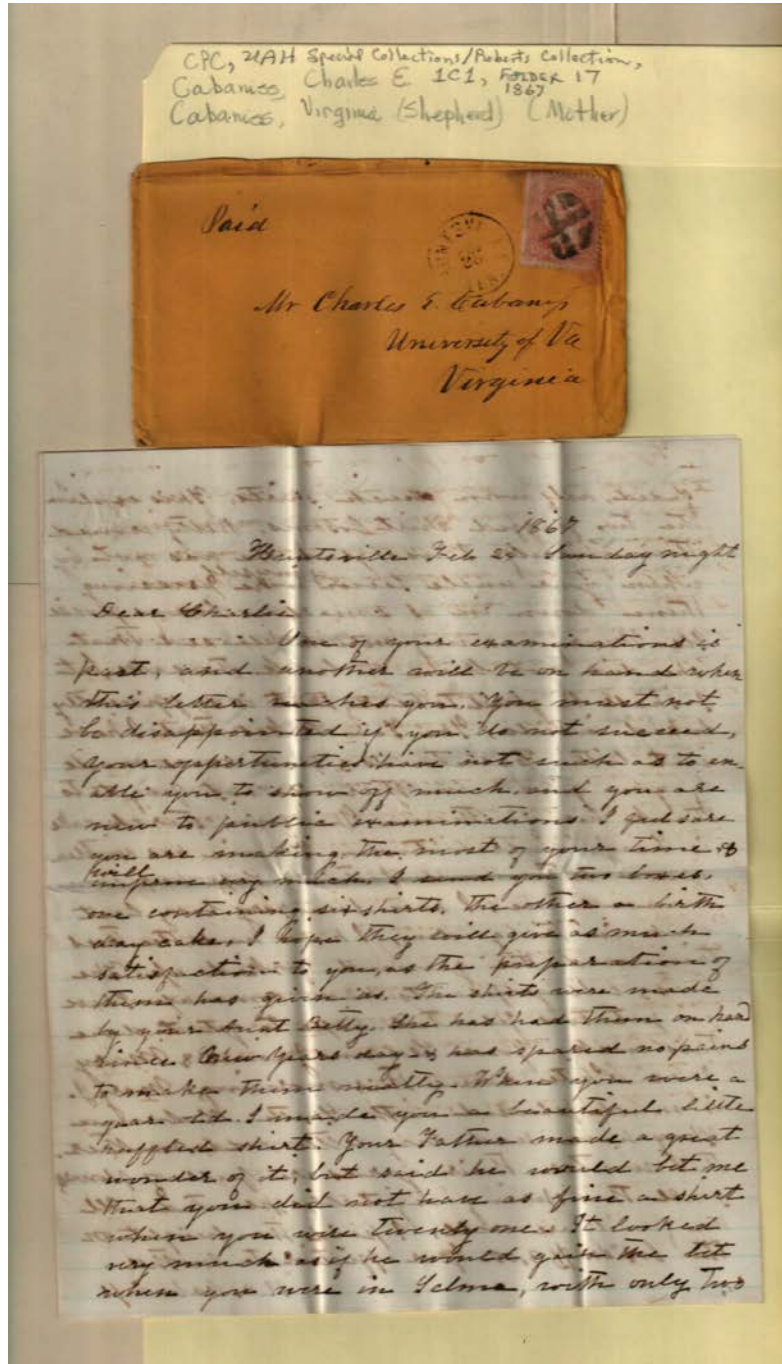 CPC, UAH Special Collections/Roberts Collection,
Cabaniss, Charles E 1C1, FOLDER 17
1867
Cabaniss, Virginia (Shepherd) (Mother)
Paid
Mr Charles E. Cabaniss
University of Va
Virginia
1867
Huntsville Feb 24 Sunday night
Dear Charlie
One of your examinations is
past, and another will be on hand when
this letter reaches you. You must not
be disappointed if you do not succeed,
your opportunities have not such as to en-
able you to show off much, and you are
new to public examinations. I feel sure
you are making the most of your time &
will
improve very much. I send you two boxes,
one containing six shirts, the other a birth
day cake. I hope they will give as much
satisfaction to you, as the preparation of
them has given us. The shirts were made
by your Aunt Betty. She has had them on hand
since New Years day & has spared no pains
to make them nicely. When you were a
year old I made you a beautiful little
ruffled shirt. Your Father made a great
wonder of it, but said he would bet me
that you did not have as fine a shirt
when you were twenty one. It looked
very much as if he would gain the bet
when you were in Selma, with only two